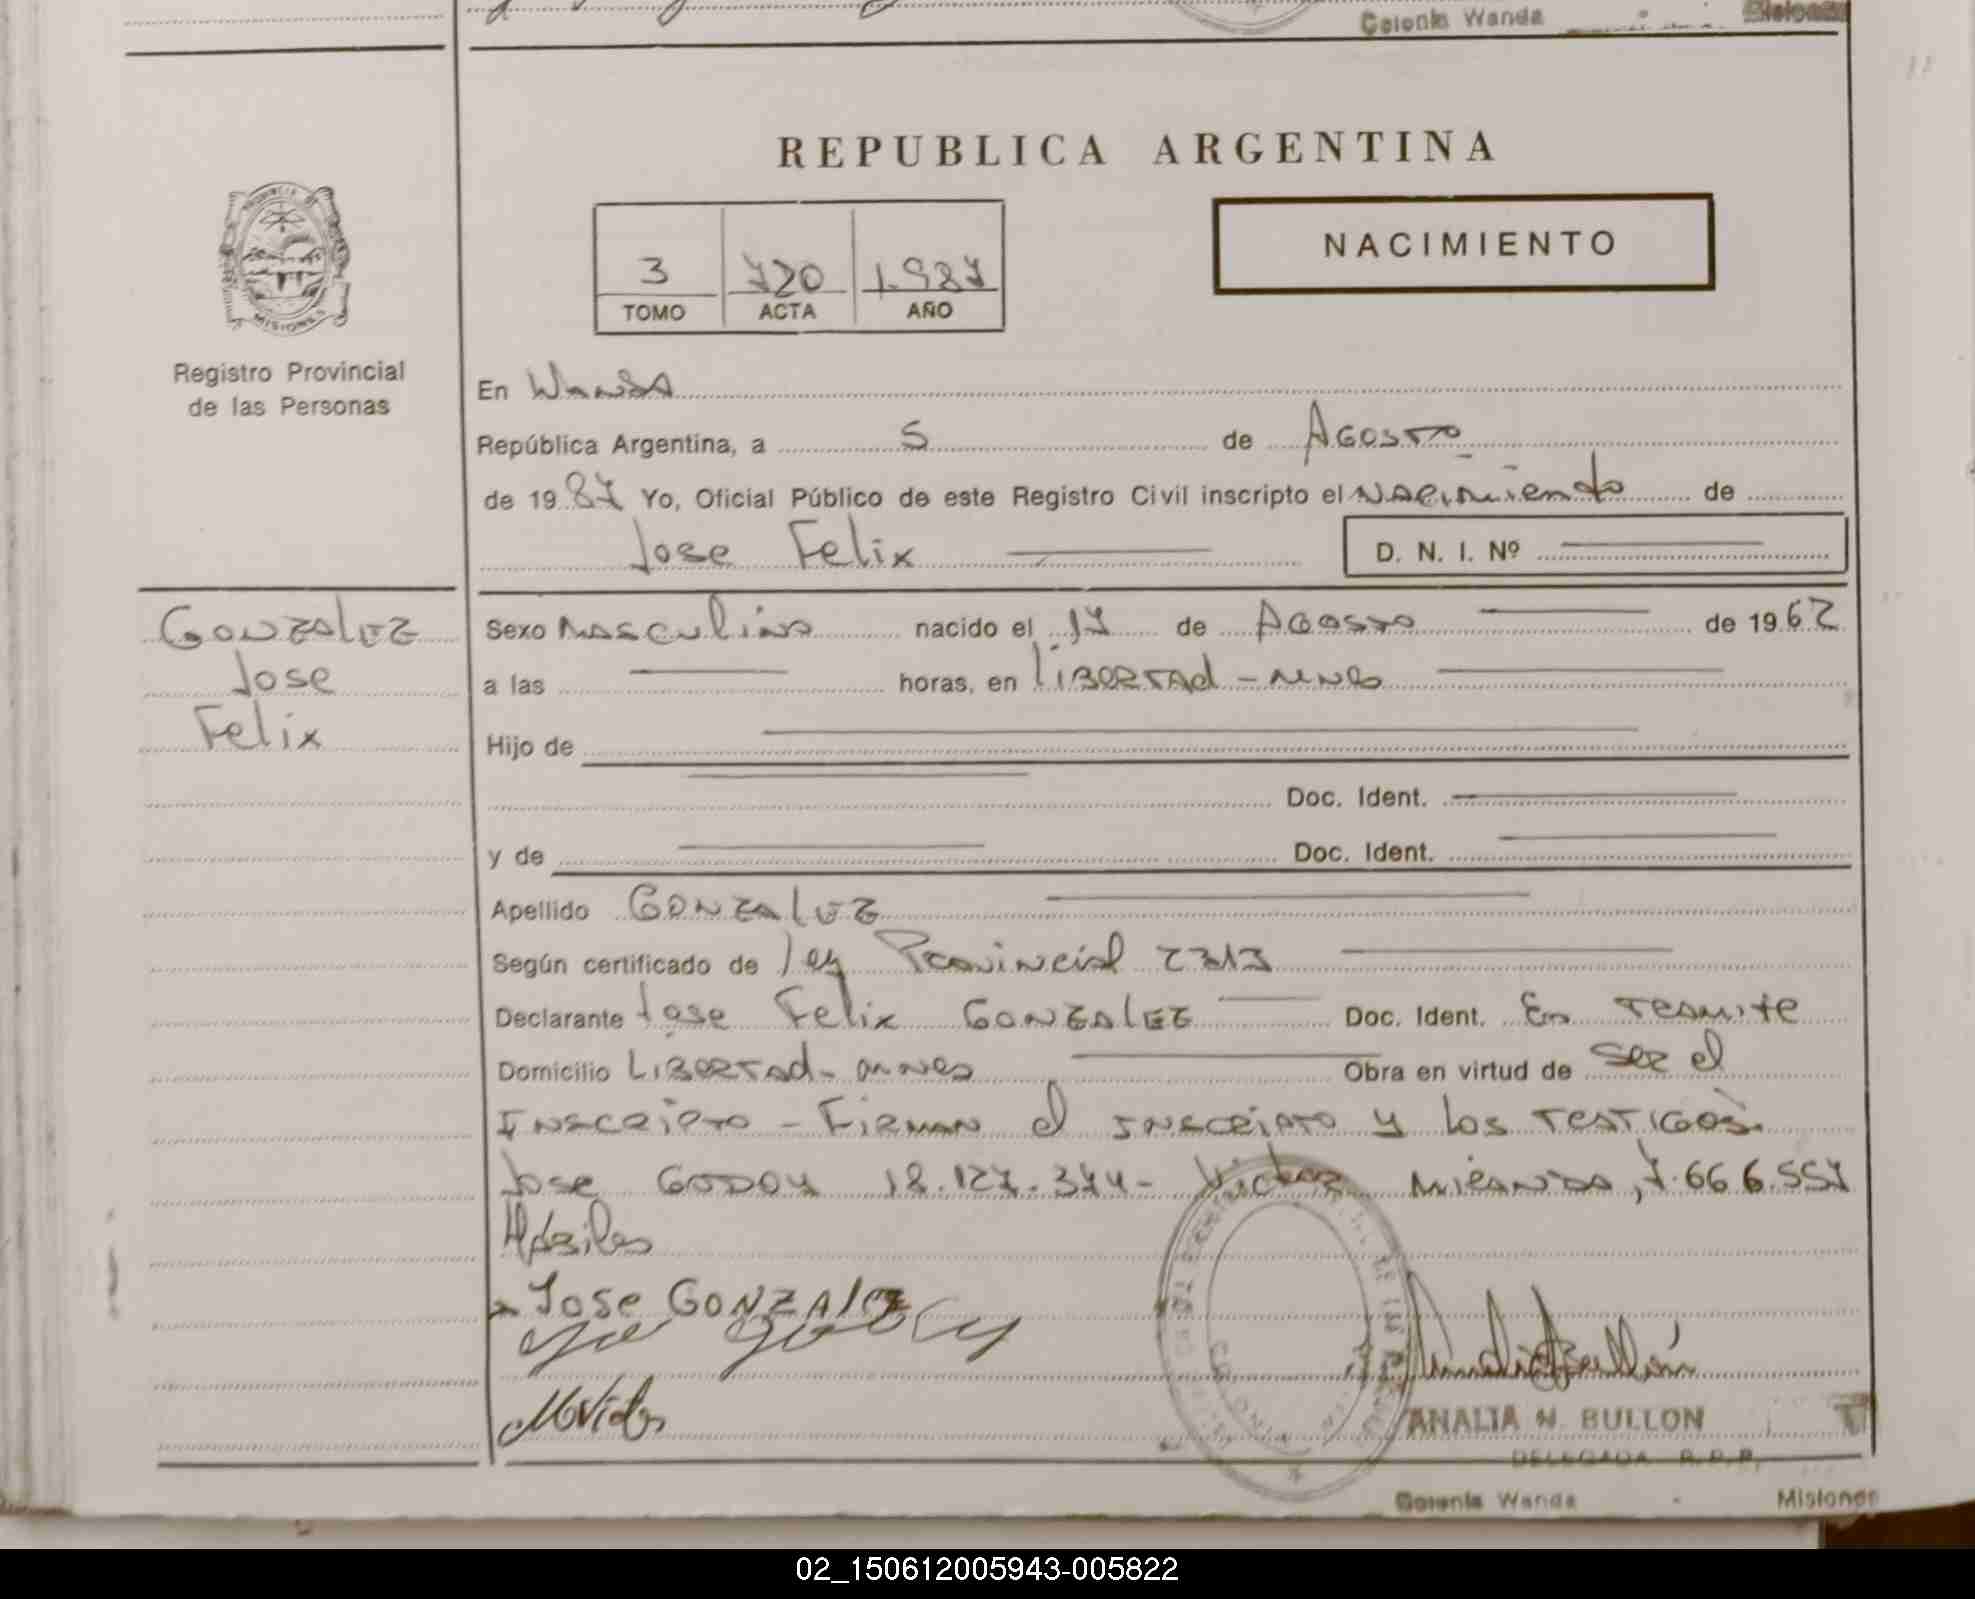 Colonia Wanda Misiones
REPUBLICA ARGENTINA
PROVINCIA DE
MISIONES
Registro Provincial
de las Personas
NACIMIENTO
3 720 1.987
TOMO ACTA AÑO
En Wanda
República Argentina, a 5 de Agosto
de 1987 Yo, Oficial Público de este Registro Civil inscripto el Nacimiento de
Jose Felix D. N. I. Nº
GONZALEZ
Jose
Felix
Sexo Masculino nacido el 17 de Agosto de 1962
a las horas, en Libertad - Mnes
Hijo de
Doc. Ident.
y de Doc. Ident.
Apellido GONZALEZ
Según certificado de ley Provincial 2313
Declarante Jose Felix GONZALEZ Doc. Ident. En Tramite
Domicilio Libertad - Mnes Obra en virtud de ser el
Inscripto - Firman el inscripto y los testigos.
Jose Godoy 18.127.344 - Victor Miranda, 7.666.557
Habiles
Jose GONZALez
ANALIA N. BULLON
DELEGADA R.P.P.
Colonia Wanda - Misiones
02_150612005943-005822